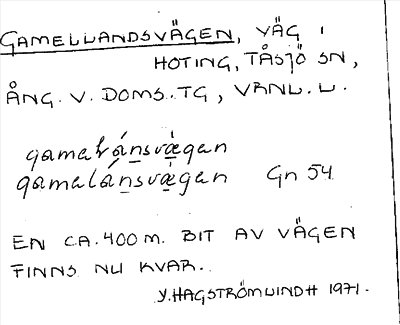 GAMELLANDSVÄGEN, VÄG I
HOTING, TÅSJÖ SN,
ÅNG. V. DOMS. TG, VRNL. L.
gamaɫáṇsvǽgan
gamaláṇsvǽgan Gn 54
EN CA. 400 M. BIT AV VÄGEN
FINNS NU KVAR.
Y. HAGSTRÖM LINDH 1971.